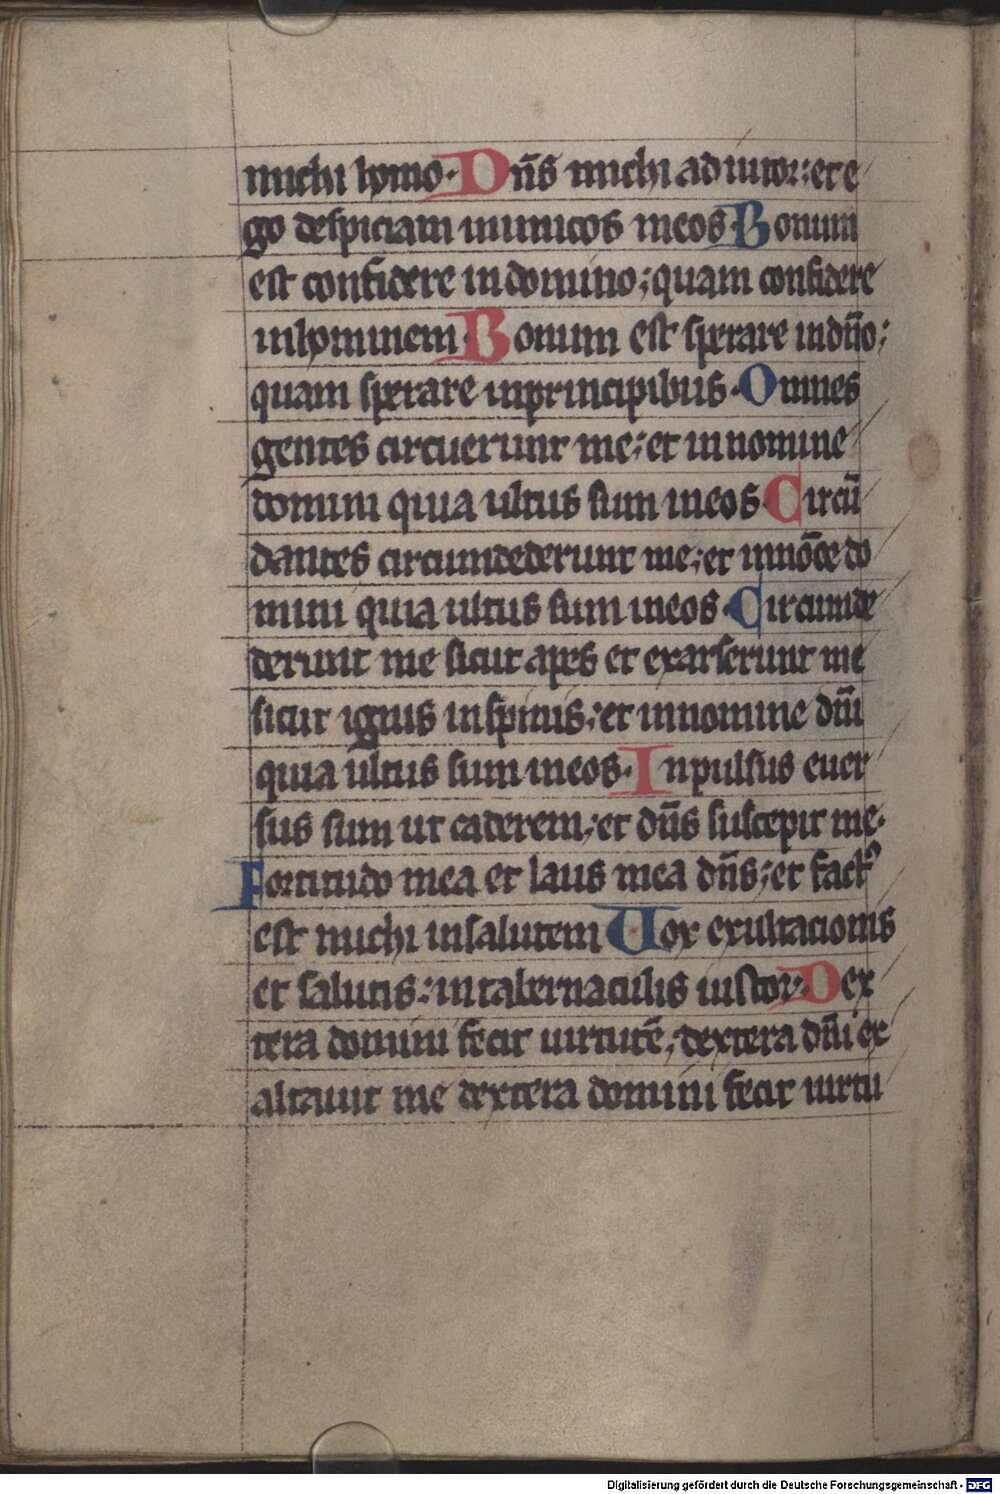 michi homo. Dn̄s michi adiutor: et e
go despiciam inimicos meos. Bonum
est confidere in domino; quam confidere
in hominem. Bonum est sperare in dn̄o;
quam sperare in principibus. Omnes
gentes circuerunt me; et in nomine
domini quia ultus sum in eos. Circū
dantes circumdederunt me; et in nōīe do
mini quia ultus sum in eos. Circumde
derunt me sicut apes et exarserunt me
sicut ignis in spinis; et in nomine dn̄i
quia ultus sum in eos. Inpulsus euer
sus sum ut caderem; et dn̄s suscepit me.
Fortitudo mea et laus mea dn̄s; et fact᷒
est michi in salutem Uox exultacionis
et salutis: in tabernaculis iustoꝝ. Dex
tera domini fecit uirtutē; dextera dn̄i ex
altauit me dextera domini fecit uirtu
Digitalisierung gefördert durch die Deutsche Forschungsgemeinschaft - DFG